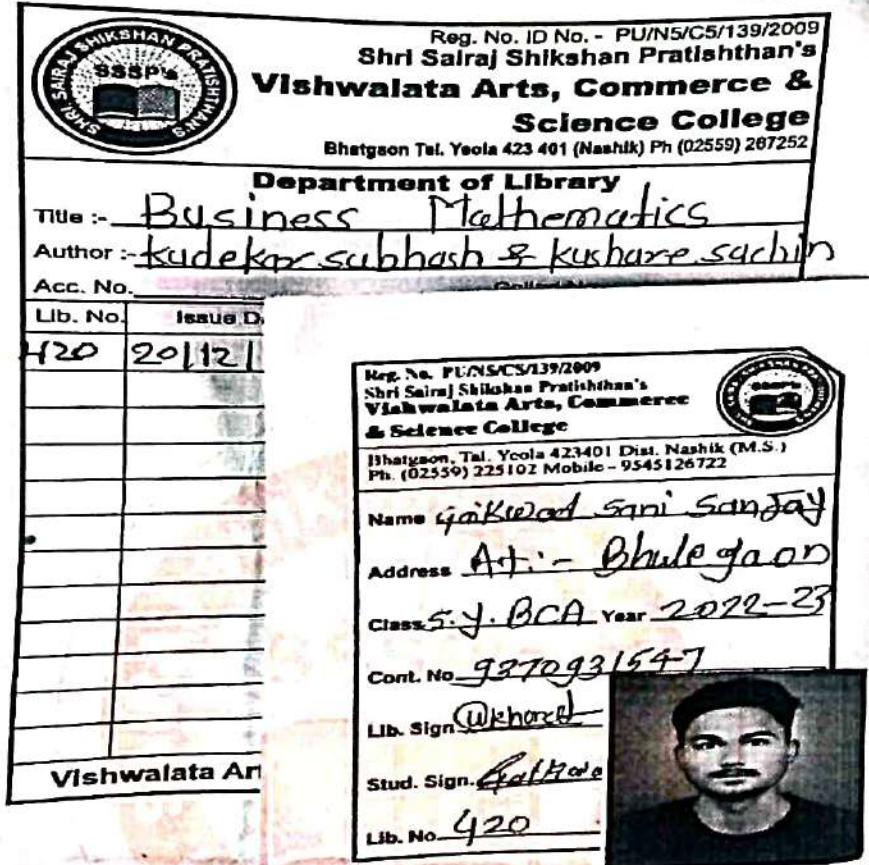 SHRI SAIRAJ SHIKSHAN PRATISHTHAN'S
SSSP's
Reg. No. ID No. - PU/N5/C5/139/2009
Shri Sairaj Shikshan Pratishthan's
Vishwalata Arts, Commerce &
Science College
Bhatgaon Tal. Yeola 423 401 (Nashik) Ph (02559) 267252
Department of Library
Title :- Business Mathematics
Author :- Kudekar subhash & kushare sachin
Acc. No.
Lib. No. Issue D
420 20/12/
Vishwalata Art
Reg. No. PU/NS/CS/139/2009
Shri Sairaj Shikshan Pratishthan's
Vishwalata Arts, Commerce
& Science College
SSSP's
Bhatgaon, Tal. Yeola 423401 Dist. Nashik (M.S.)
Ph. (02559) 225102 Mobile - 9545126722
Name Gaikwad Sani Sanjay
Address At:- Bhulegaon
Class S.Y. BCA Year 2022-23
Cont. No 9370931547
Lib. Sign
Stud. Sign.
Lib. No 420